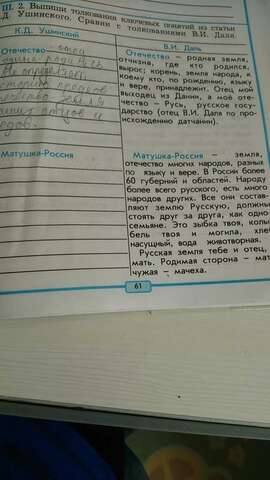 III. 2. Выпиши толкования ключевых понятий из статьи
Д. Ушинского. Сравни с толкованиями В.И. Даля.
К.Д. Ушинский
В.И. Даль
Отечество –
Отечество – родная земля,
отчизна, где кто родился,
вырос; корень, земля народа, к
коему кто, по рождению, языку
и вере, принадлежит. Отец мой
выходец из Дании, а моё оте-
чество – Русь, русское госу-
дарство (отец В.И. Даля по про-
исхождению датчанин).
Матушка-Россия
Матушка-Россия – земля,
отечество многих народов, разных
по языку и вере. В России более
60 губерний и областей. Народу
более всего русского, есть много
народов других. Все они состав-
ляют землю Русскую, должны
стоять друг за друга, как одно-
семьяне. Это зыбка твоя, колы-
бель твоя и могила, хлеб
насущный, вода животворная.
Русская земля тебе и отец,
мать. Родимая сторона – мать
чужая – мачеха.
61